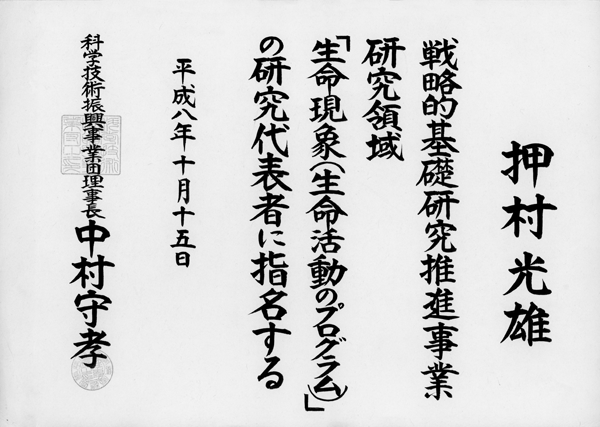 押村光雄
戦略的基礎研究推進事業
研究領域
「生命現象(生命活動のプログラム)」
の研究代表者に指名する
平成八年十月十五日
科学技術振興事業団理事長 中村守孝